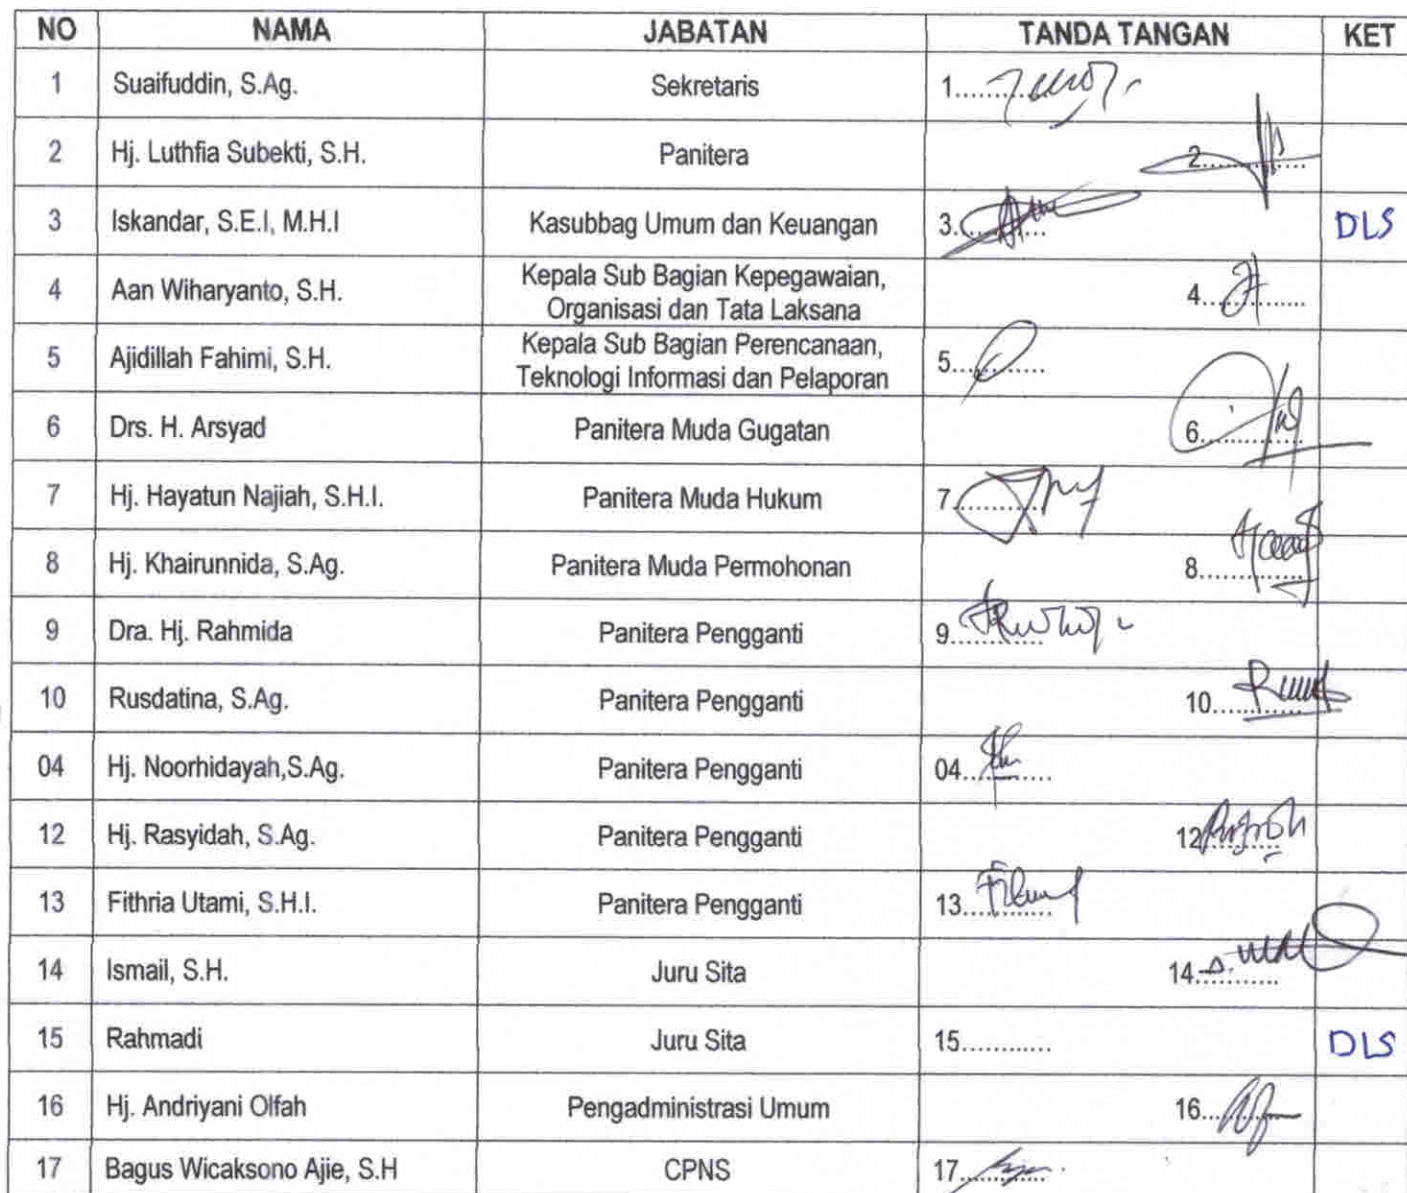 NO NAMA JABATAN TANDA TANGAN KET
1 Suaifuddin, S.Ag. Sekretaris 1............
2 Hj. Luthfia Subekti, S.H. Panitera 2............
3 Iskandar, S.E.I, M.H.I Kasubbag Umum dan Keuangan 3............ DLS
4 Aan Wiharyanto, S.H. Kepala Sub Bagian Kepegawaian,
Organisasi dan Tata Laksana 4............
5 Ajidillah Fahimi, S.H. Kepala Sub Bagian Perencanaan,
Teknologi Informasi dan Pelaporan 5............
6 Drs. H. Arsyad Panitera Muda Gugatan 6............
7 Hj. Hayatun Najiah, S.H.I. Panitera Muda Hukum 7............
8 Hj. Khairunnida, S.Ag. Panitera Muda Permohonan 8............
9 Dra. Hj. Rahmida Panitera Pengganti 9............
10 Rusdatina, S.Ag. Panitera Pengganti 10............
04 Hj. Noorhidayah,S.Ag. Panitera Pengganti 04............
12 Hj. Rasyidah, S.Ag. Panitera Pengganti 12............
13 Fithria Utami, S.H.I. Panitera Pengganti 13............
14 Ismail, S.H. Juru Sita 14............
15 Rahmadi Juru Sita 15............ DLS
16 Hj. Andriyani Olfah Pengadministrasi Umum 16............
17 Bagus Wicaksono Ajie, S.H CPNS 17............